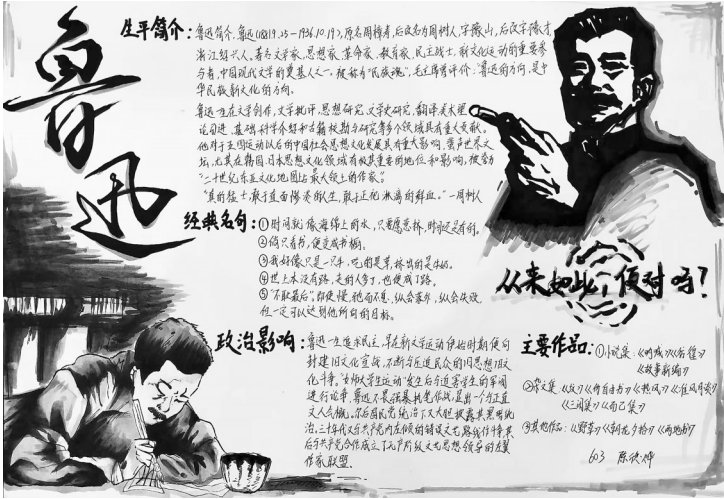 鲁迅
生平简介:鲁迅简介,鲁迅(1881.9.25—1936.10.19),原名周樟寿,后改名为周树人,字豫山,后改字豫才
浙江绍兴人。著名文学家,思想家,革命家,教育家,民主战士,新文化运动的重要参
与者,中国现代文学的奠基人之一。被称为"民族魂",毛主席曾评价:"鲁迅的方向,是中
华民族新文化的方向。
鲁迅一生在文学创作,文学批评,思想研究,文学史研究,翻译,美术理
论引进,基础科学介绍和古籍校勘与研究等多个领域具有重大贡献。
他对于五四运动以后的中国社会思想文化发展具有重大影响,蜚声世界文
坛,尤其在韩国,日本思想文化领域有极其重要的地位和影响,被誉为
"二十世纪东亚文化地图上最大领土的作家"
"真的猛士,敢于直面惨淡的人生,敢于正视淋漓的鲜血。"—周树人
经典名句:①时间就像海绵上的水,只要愿意挤,时间还是有的。
②倘只看书,便变成书橱。
③我好像只是一只牛,吃的是草,挤出的是牛奶。
④世上本没有路,走的人多了,也便成了路。
⑤"不耻最后"。即使慢,驰而不息,纵会落后,纵会失败
但一定可以达到他所向的目标。
从来如此,便对吗?
政治影响:鲁迅一生追求民主,早在新文学运动伊始时期便向
封建旧文化宣战,不断与压迫民众的旧思想旧文
化斗争。女师大学生运动发生后与迫害学生的军阀
进行论争,鲁迅不畏强暴执笔作战,显出一个正直
文人合概。尔后国民党统治下又大胆披露其黑暗统
治,三十年代又与共产党内左倾的错误文艺路线作斗争,其
后与共产党合作成立了无产阶级文艺思想领导的左翼
作家联盟.
主要作品:①小说集:《呐喊》《彷徨》
《故事新编》
②杂文集:《坟》《伪自由书》《热风》《准风月谈》
《三闲集》《而已集》
③其他作品:《野草》《朝花夕拾》《两地书》
603